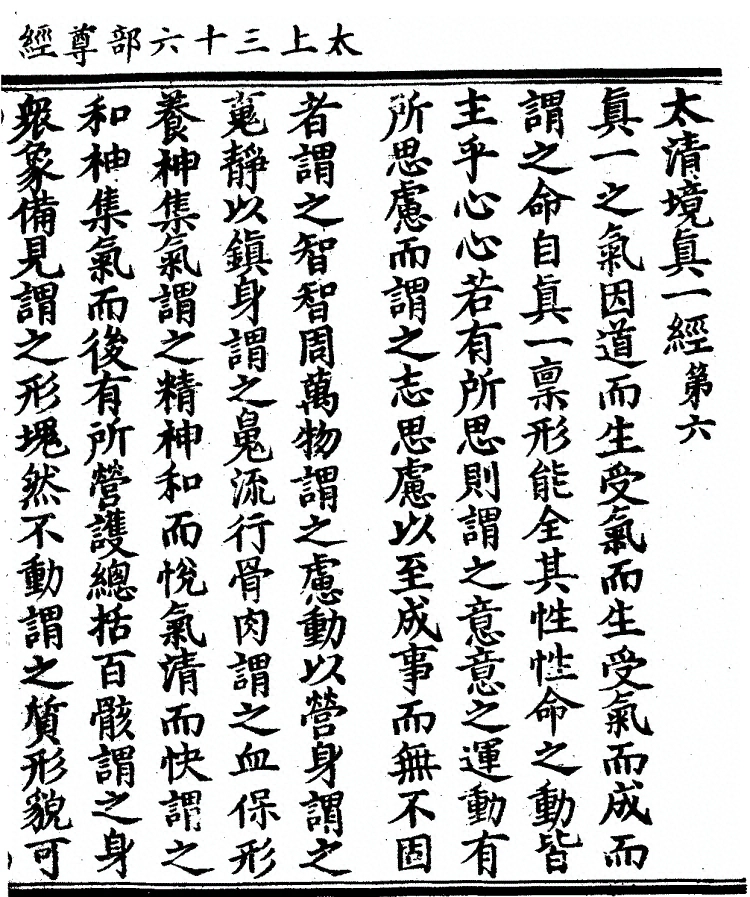 太上三十六部尊經
太清境眞一經第六
眞一之氣因道而生受氣而生受氣而成而
謂之命自眞一禀形能全其性性命之動皆
主乎心心若有所思則謂之意意之運動有
所思慮而謂之志思慮以至成事而無不固
者謂之智智周萬物謂之慮動以營身謂之
䰟靜以鎮身謂之鬼流行骨肉謂之血保形
養神集氣謂之精神和而悅氣清而快謂之
和神集氣而後有所營護總括百骸謂之身
衆象備見謂之形塊然不動謂之質形貌可